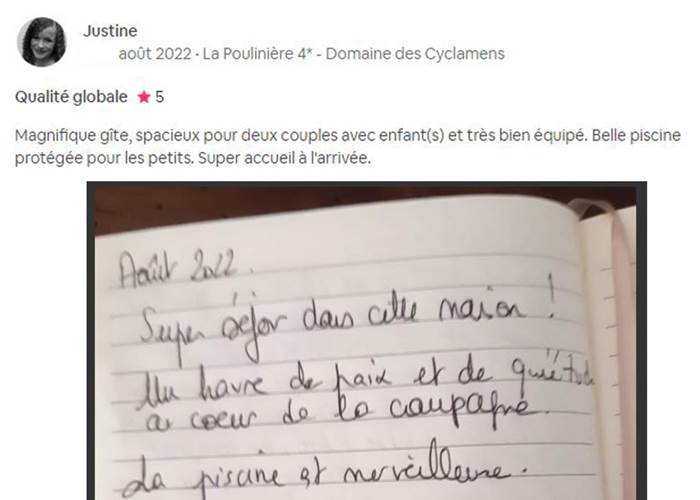 Justine
août 2022 · La Poulinière 4* - Domaine des Cyclamens
Qualité globale ★ 5
Magnifique gîte, spacieux pour deux couples avec enfant(s) et très bien équipé. Belle piscine
protégée pour les petits. Super accueil à l'arrivée.
Août 2022.
Super séjor dans cette maison !
Un havre de paix et de quiétude
au coeur de la campagne.
La piscine est merveilleuse.